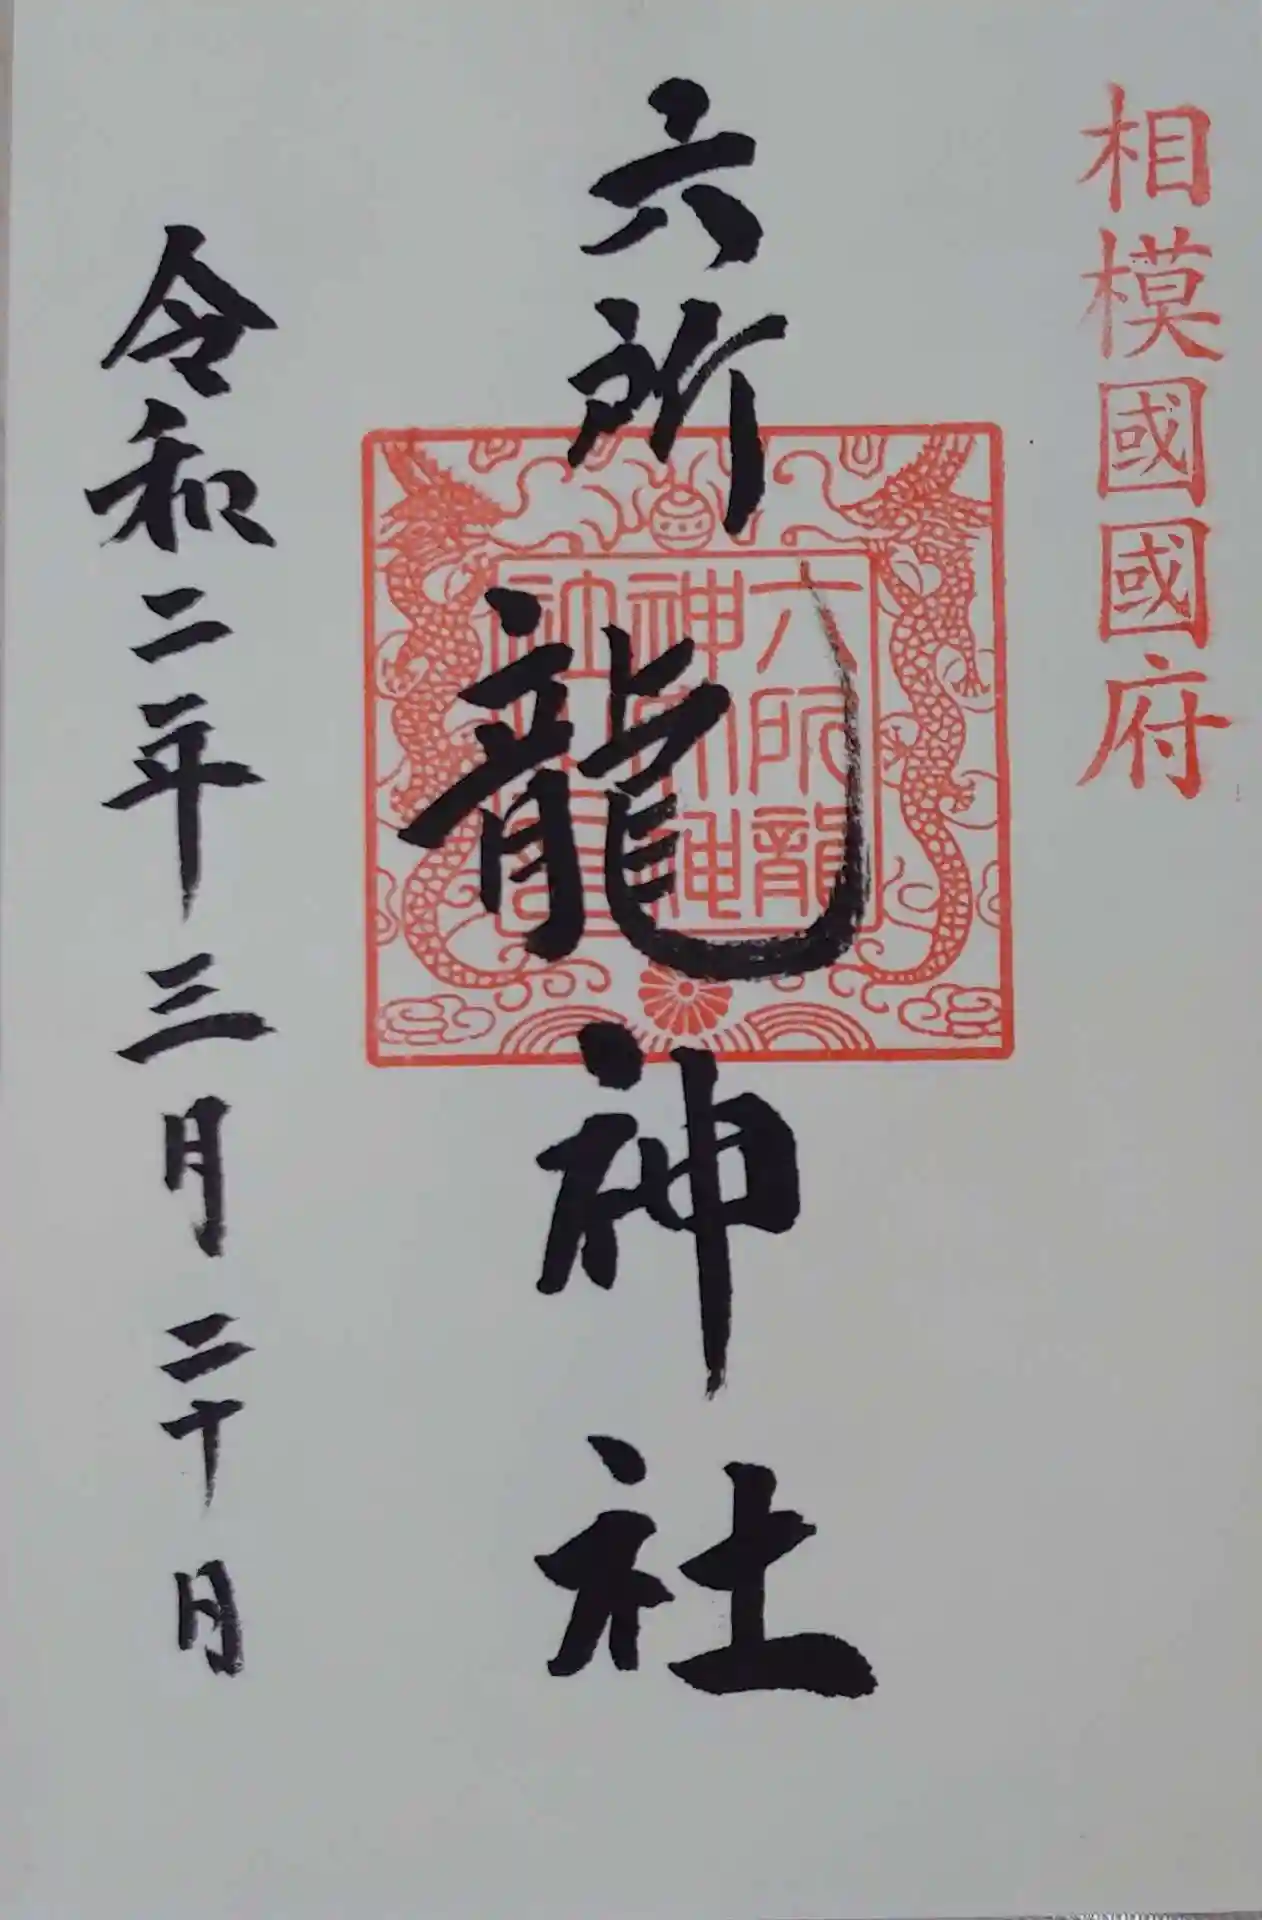 相模國國府
六所龍神社
六所龍
令和二年三月二十日